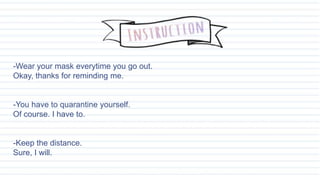 INSTRUCTION
-Wear your mask everytime you go out.
Okay, thanks for reminding me.
-You have to quarantine yourself.
Of course. I have to.
-Keep the distance.
Sure, I will.